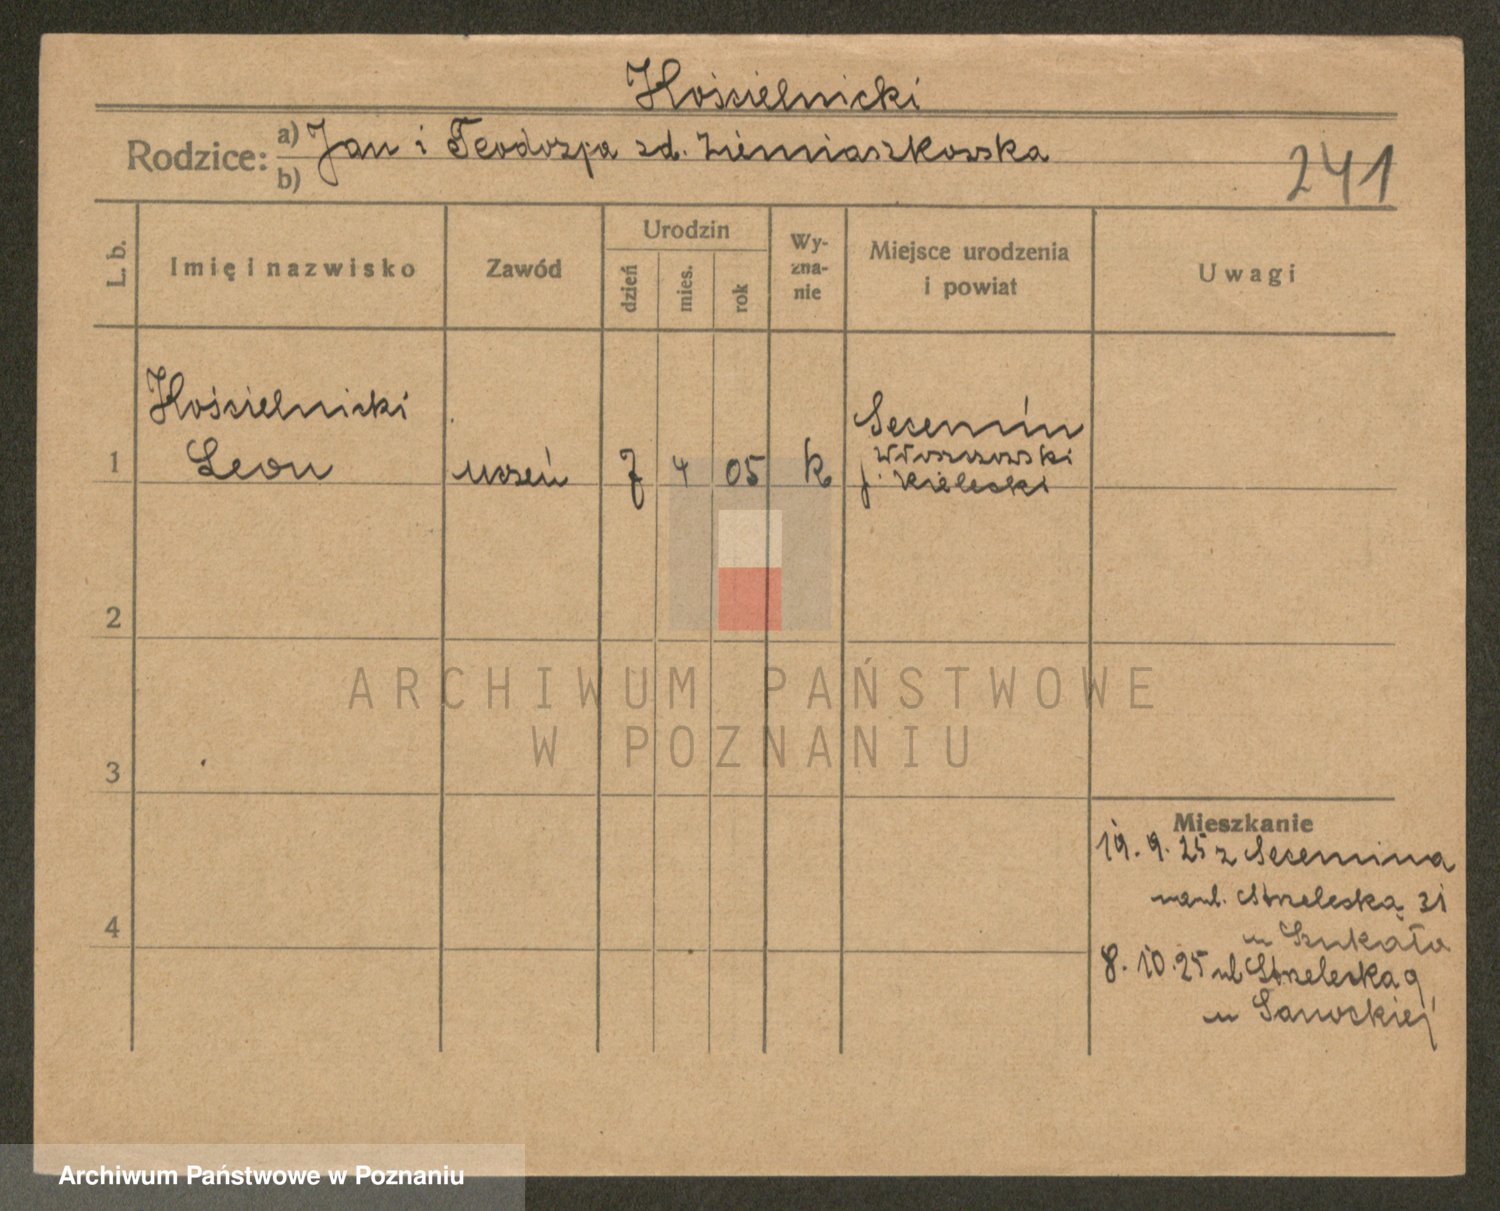 Kościelnicki
Rodzice: a) Jan i Teodozja zd. Ziemiaszkowska
b)
241
L. b.
Imię i nazwisko
Zawód
Urodzin
dzień
mies.
rok
Wy-
zna-
nie
Miejsce urodzenia
i powiat
Uwagi
Kościelnicki
1 Leon uczeń 7 4 05 k
Secemin
Włoszczowski
Kielecki
2
3
4
Mieszkanie
19. 9. 25 z Secemina
na ul. Strzelecką 31
u Szukała
8. 10. 25 ul Strzelecka 9
u Sanockiej
ARCHIWUM PAŃSTWOWE
W POZNANIU
Archiwum Państwowe w Poznaniu